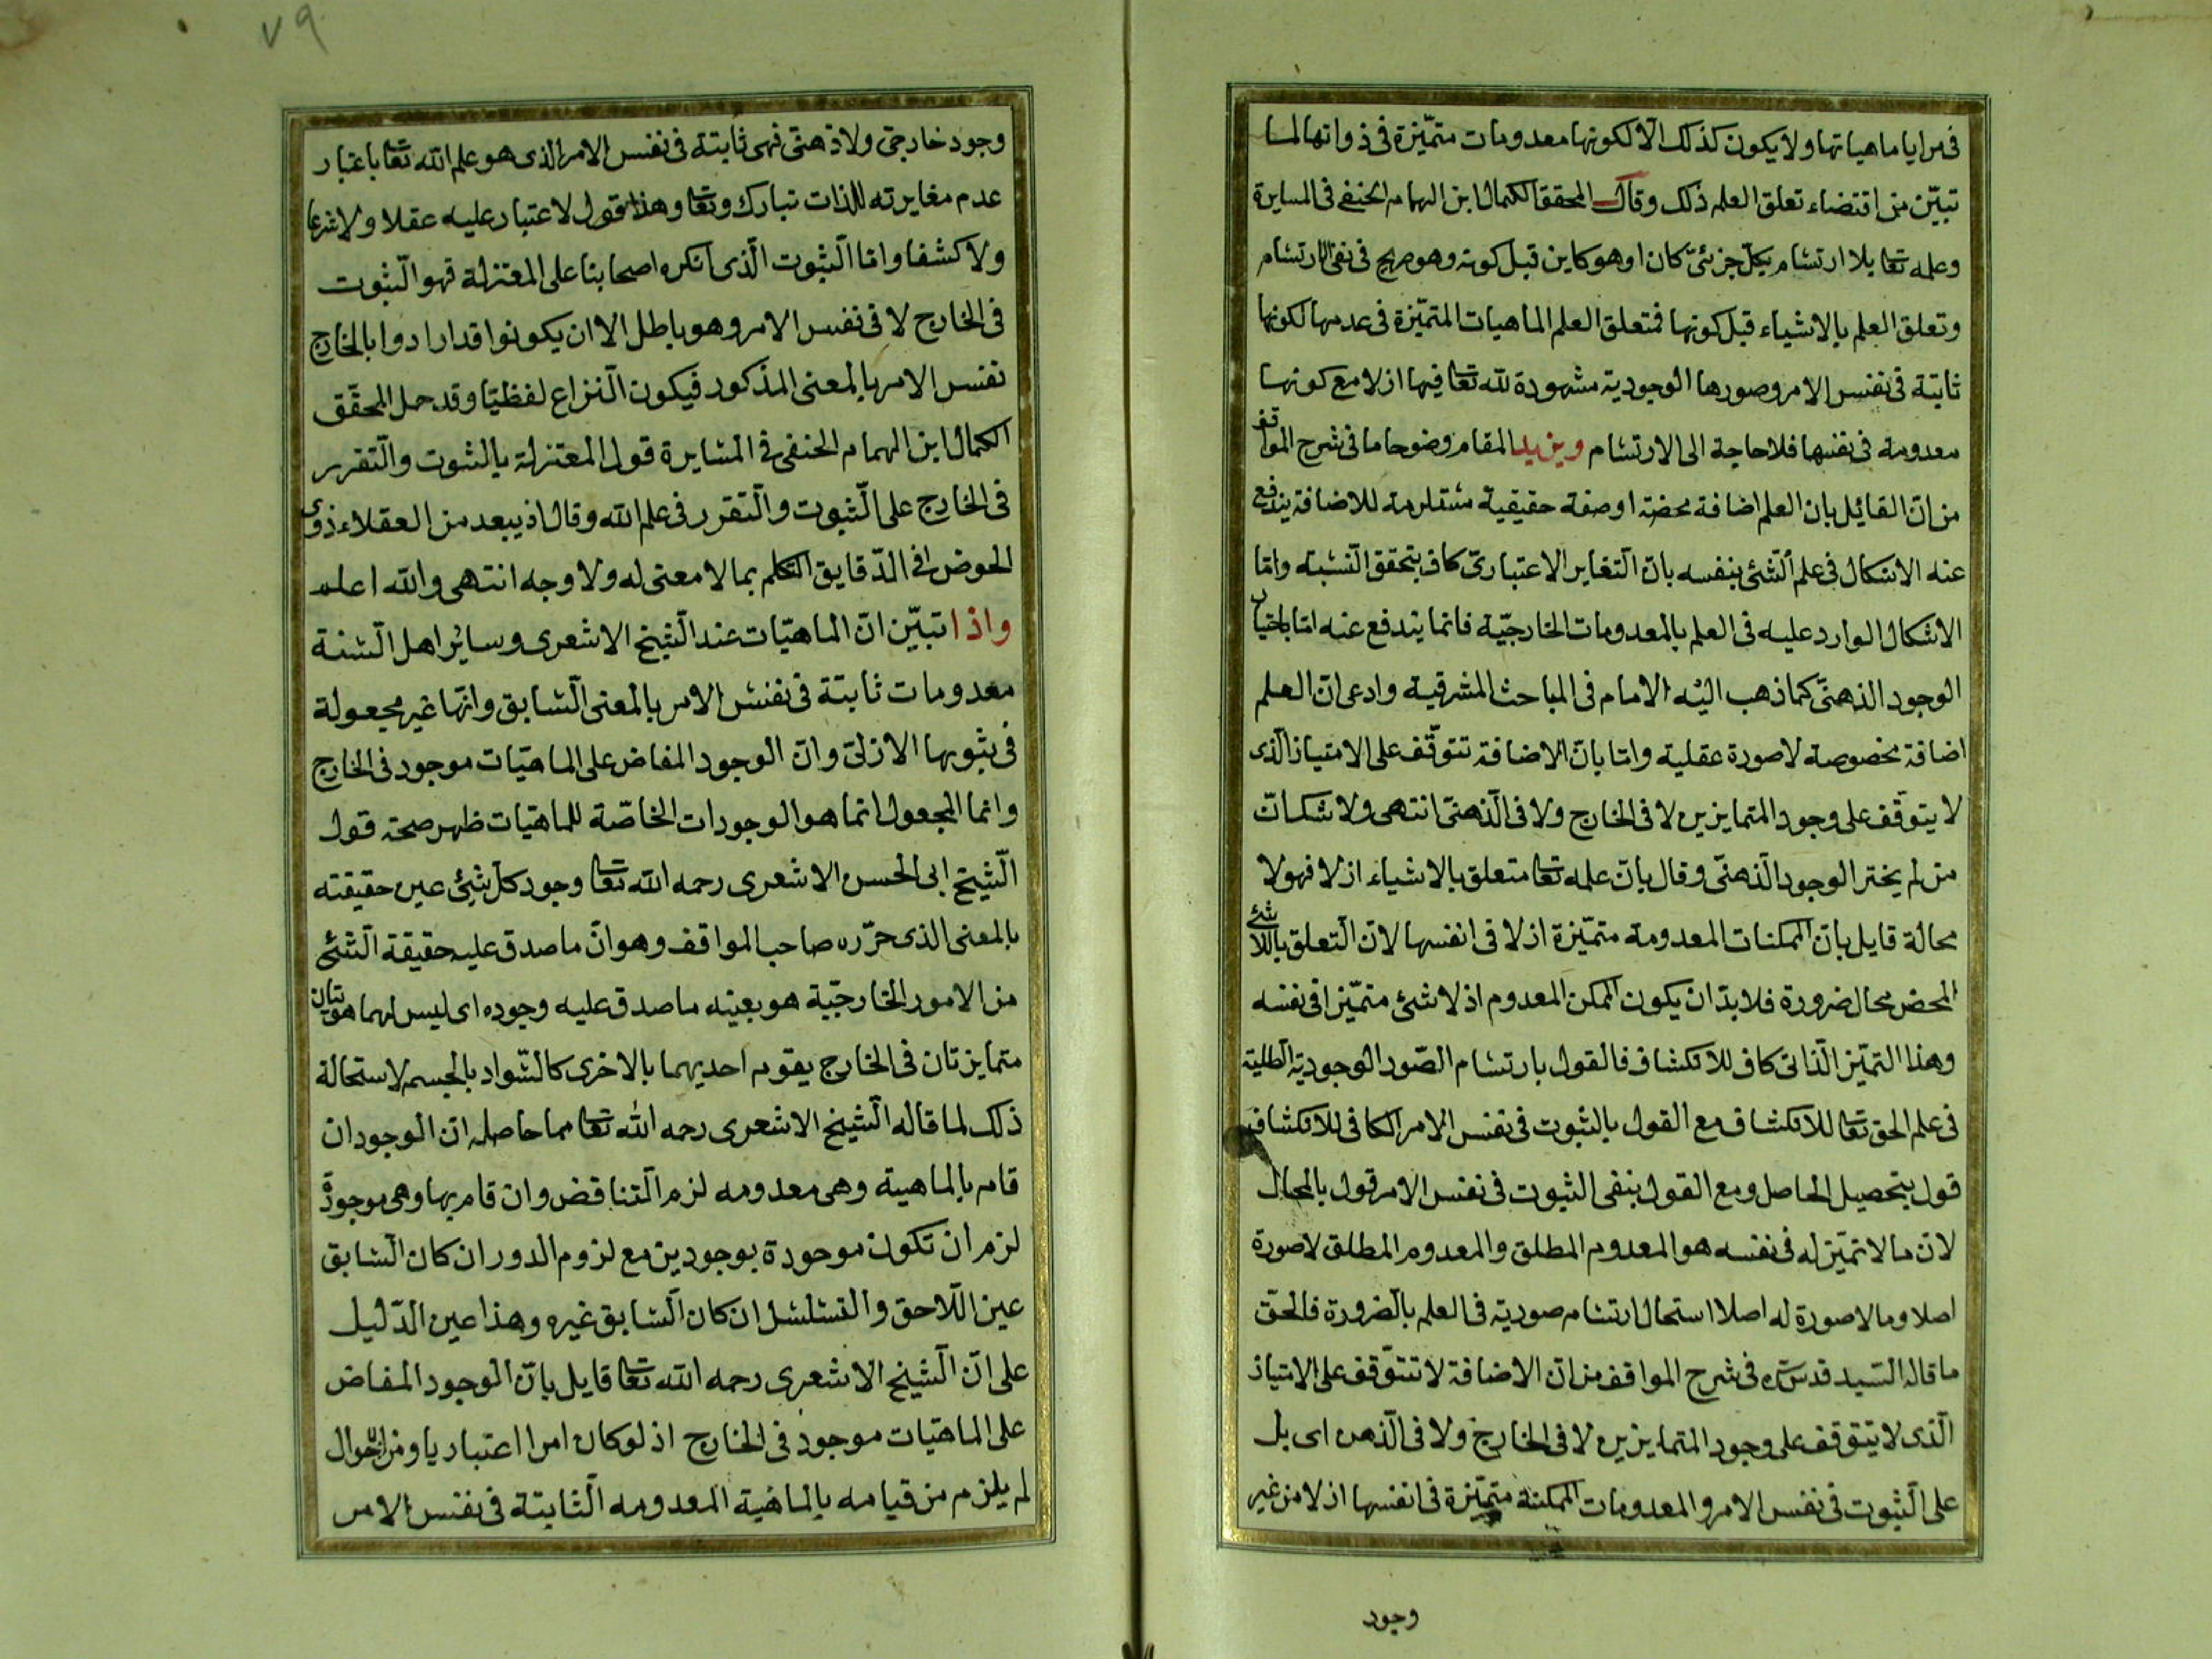 في مرايا ماهياتها ولا يكون كذلك الا لكونها معدومات متميّزة في ذواتها لما
تبيّن من اقتضاء تعلق العلم ذلك وقال المحقق الكمال ابن الهمام الحنفي في المسايرة
وعلمه تعا بلا ارتسام بكل جزئيّ كان او هو كاين قبل كونه وهو صريح في نفي الارتسام
وتعلق العلم بالاشياء قبل كونها فمتعلق العلم الماهيات المتميّزة في عدمها لكونها
ثابتة في نفس الامر وصورها الوجودية مشهودة لله تعا فيها ازلا مع كونها
معدومة في نفسها فلا حاجة الى الارتسام ويزيد المقام وضوحا ما في شرح المواقف
من انّ القائل بان العلم اضافة محضة او صفة حقيقية مستلزمة للاضافة يندفع
عنه الاشكال في علم الّشئ بنفسه بانّ التغاير الاعتباريّ كاف بتحقق النسبة وامّا
الاشكال الوارد عليه في العلم بالمعدومات الخارجيّة فانما يندفع عنه امّا باختيار
الوجود الذهنيّ كما ذهب اليه الامام في المباحث المشرقية وادعى انّ العلم
اضافة مخصوصة لا صورة عقلية وامّا بانّ الاضافة تتوقّف على الامتياز الّذى
لا يتوقّف على وجود المتمايزين لا في الخارج ولا في الّذهنيّ انتهى ولا شك انّ
من لم يختر الوجود الّذهنّي وقال بانّ علمه تعا متعلق بالاشياء ازلا فهو لا
محالة قايل بانّ الممكنات المعدومة متميّزة ازلا في انفسها لانّ التعلق باللّا شئ
المحض محال ضرورة فلا بدّ ان يكون الممكن المعدوم اذ لا شئ متميّزا في نفسه
وهذا التميّز الّذاتي كاف للانكشاف فالقول بارتسام الصّور الوجودية الظلية
في علم الحق تعا للانكشاف مع القول بالثبوت في نفس الامر الكافي للانكشاف
قول بتحصيل الحاصل ومع القول بنفى الثبوت في نفس الامر قول بالمحال
لانّ ما لا تميّز له في نفسه هو المعدوم المطلق والمعدوم المطلق لا صورة
اصلا وما لا صورة له اصلا استحال ارتسام صورية في العلم بالضرورة فالحقّ
ما قاله السّيد قدّس سّره في شرح المواقف من انّ الاضافة لا تتوّقف على الامتياز
الّذى لا يتوّقف على وجود المتمايزين لا في الخارج ولا في الّذهن اى بل
على الّثبوت في نفس الامر والمعدومات الممكنة متميّزة في انفسها ازلا من غير
وجود
٧٩
وجود خارجيّ ولا ذهنيّ فهي ثابتة في نفس الامر الذى هو علم الله تعا باعتبار
عدم مغايرته للذات تبارك وتعا وهذا قول لا غبار عليه عقلا ولا شرعا
ولا كشفا وامّا الّثبوت الّذى انكره اصحابنا على المعتزلة فهو الّثبوت
في الخارج لا في نفس الامر وهو باطل الا ان يكونوا قد ارادوا بالخارج
نفس الامر بالمعنى المذكور فيكون الّنزاع لفظيّا وقد حمل المحقّق
الكمال ابن الهمام الحنفي في المسايرة قول المعتزلة بالثبوت والّتقرر
في الخارج على الّثبوت والّتقرر في علم الله وقال اذ يبعد من العقلاء ذوى
الخوض في الدّقايق التكلم بما لا معنى له ولا وجه انتهى والله اعلم
واذا تبيّن انّ الماهيّات عند الّشيخ الاشعرى وساير اهل الّسنة
معدومات ثابتة في نفس الامر بالمعنى الّسابق وانّها غير مجعولة
في ثبوتها الازليّ وانّ الوجود المفاض على الماهيّات موجود في الخارج
وانما المجعول انما هو الوجودات الخاصّة للماهيّات ظهر صحة قول
الّشيخ ابى الحسن الاشعرى رحمه الله تعا وجود كلّ شئ عين حقيقته
بالمعنى الذى حرّره صاحب المواقف وهو انّ ما صدق عليه حقيقة الّشئ
من الامور الخارجيّة هو بعينه ما صدق عليه وجوده اى ليس لهما هويّتان
متمايزتان في الخارج يقوم احديهما بالاخرى كالسّواد بالجسم لاستحالة
ذلك لما قاله الّشيخ الاشعرى رحمه الله تعا مما حاصله ان الوجود ان
قام بالماهية وهى معدومه لزم الّتناقض وان قام بها وهى موجودة
لزم ان تكون موجودة بوجودين مع لزوم الدور ان كان الّسابق
عين الّلاحق والتسلسل ان كان الّسابق غيره وهذا عين الدّليل
على انّ الّشيخ الاشعرى رحمه الله تعا قايل بانّ الوجود المفاض
على الماهيّات موجود في الخارج اذ لو كان امرا اعتباريا ومن الاحوال
لم يلزم من قيامه بالماهية المعدومه الّثابتة في نفس الامر